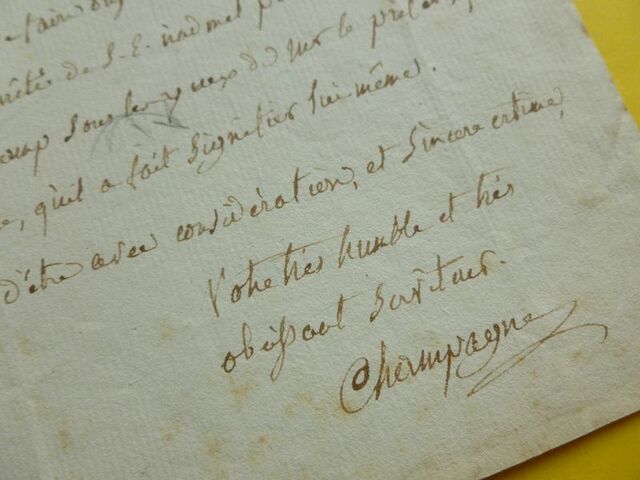 faire
de S. E. n'admet
sous les yeux de Mr le préfet,
, qu'il a fait signifier lui même.
d'être avec considération, et sincère estime,
Votre très humble et très
obéissant serviteur.
Champagne